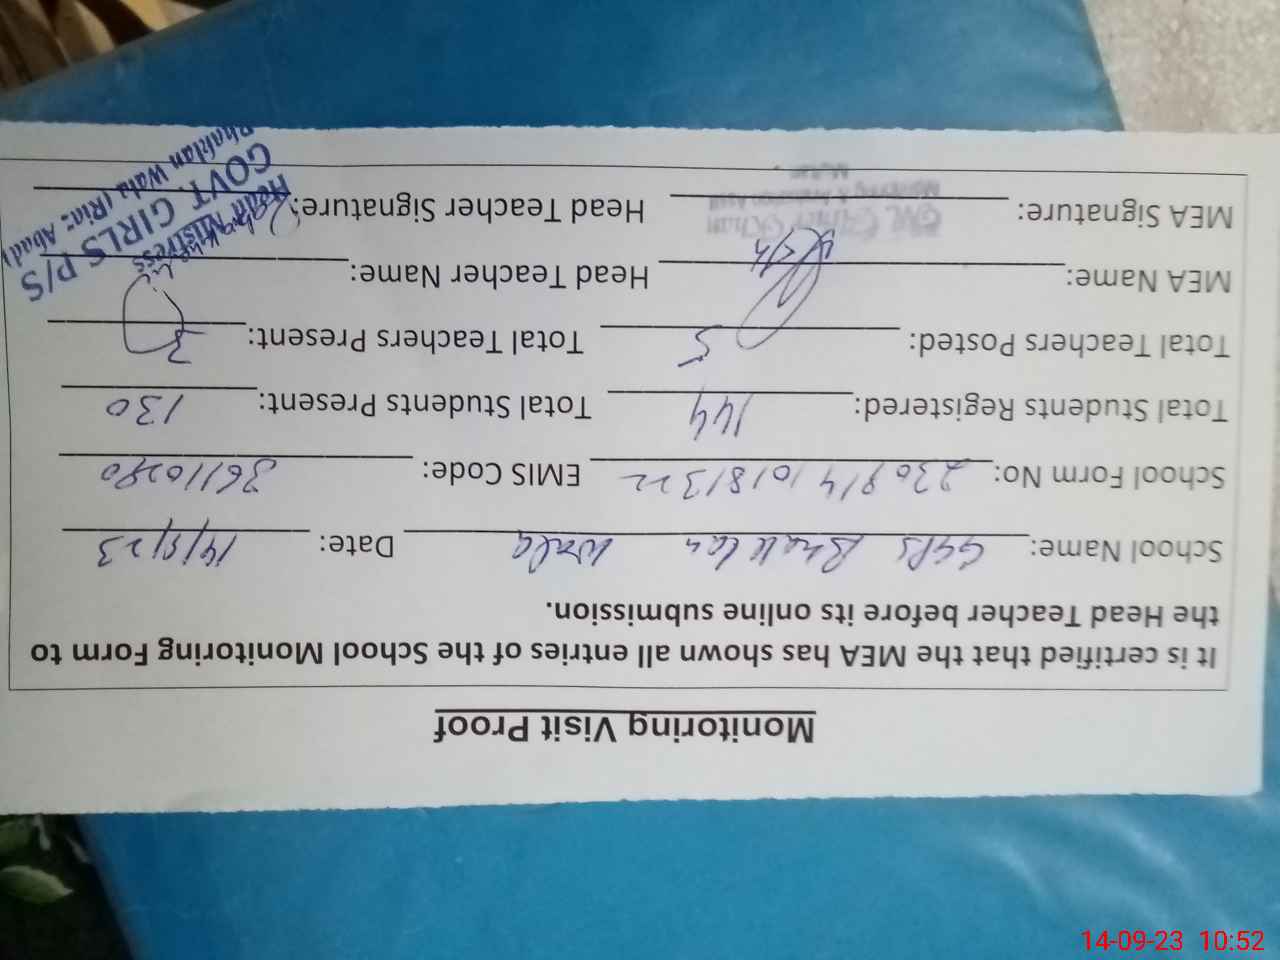 Monitoring Visit Proof
It is certified that the MEA has shown all entries of the School Monitoring Form to
the Head Teacher before its online submission.
School Name: GGPS Bhakhlan Wala Date: 14/9/23
School Form No: EMIS Code: 36110290
Total Students Registered: 144 Total Students Present: 130
Total Teachers Posted: 5 Total Teachers Present: 3
MEA Name: Head Teacher Name:
MEA Signature: Head Teacher Signature:
Head Mistress
GOVT. GIRLS P/S
14-09-23 10:52